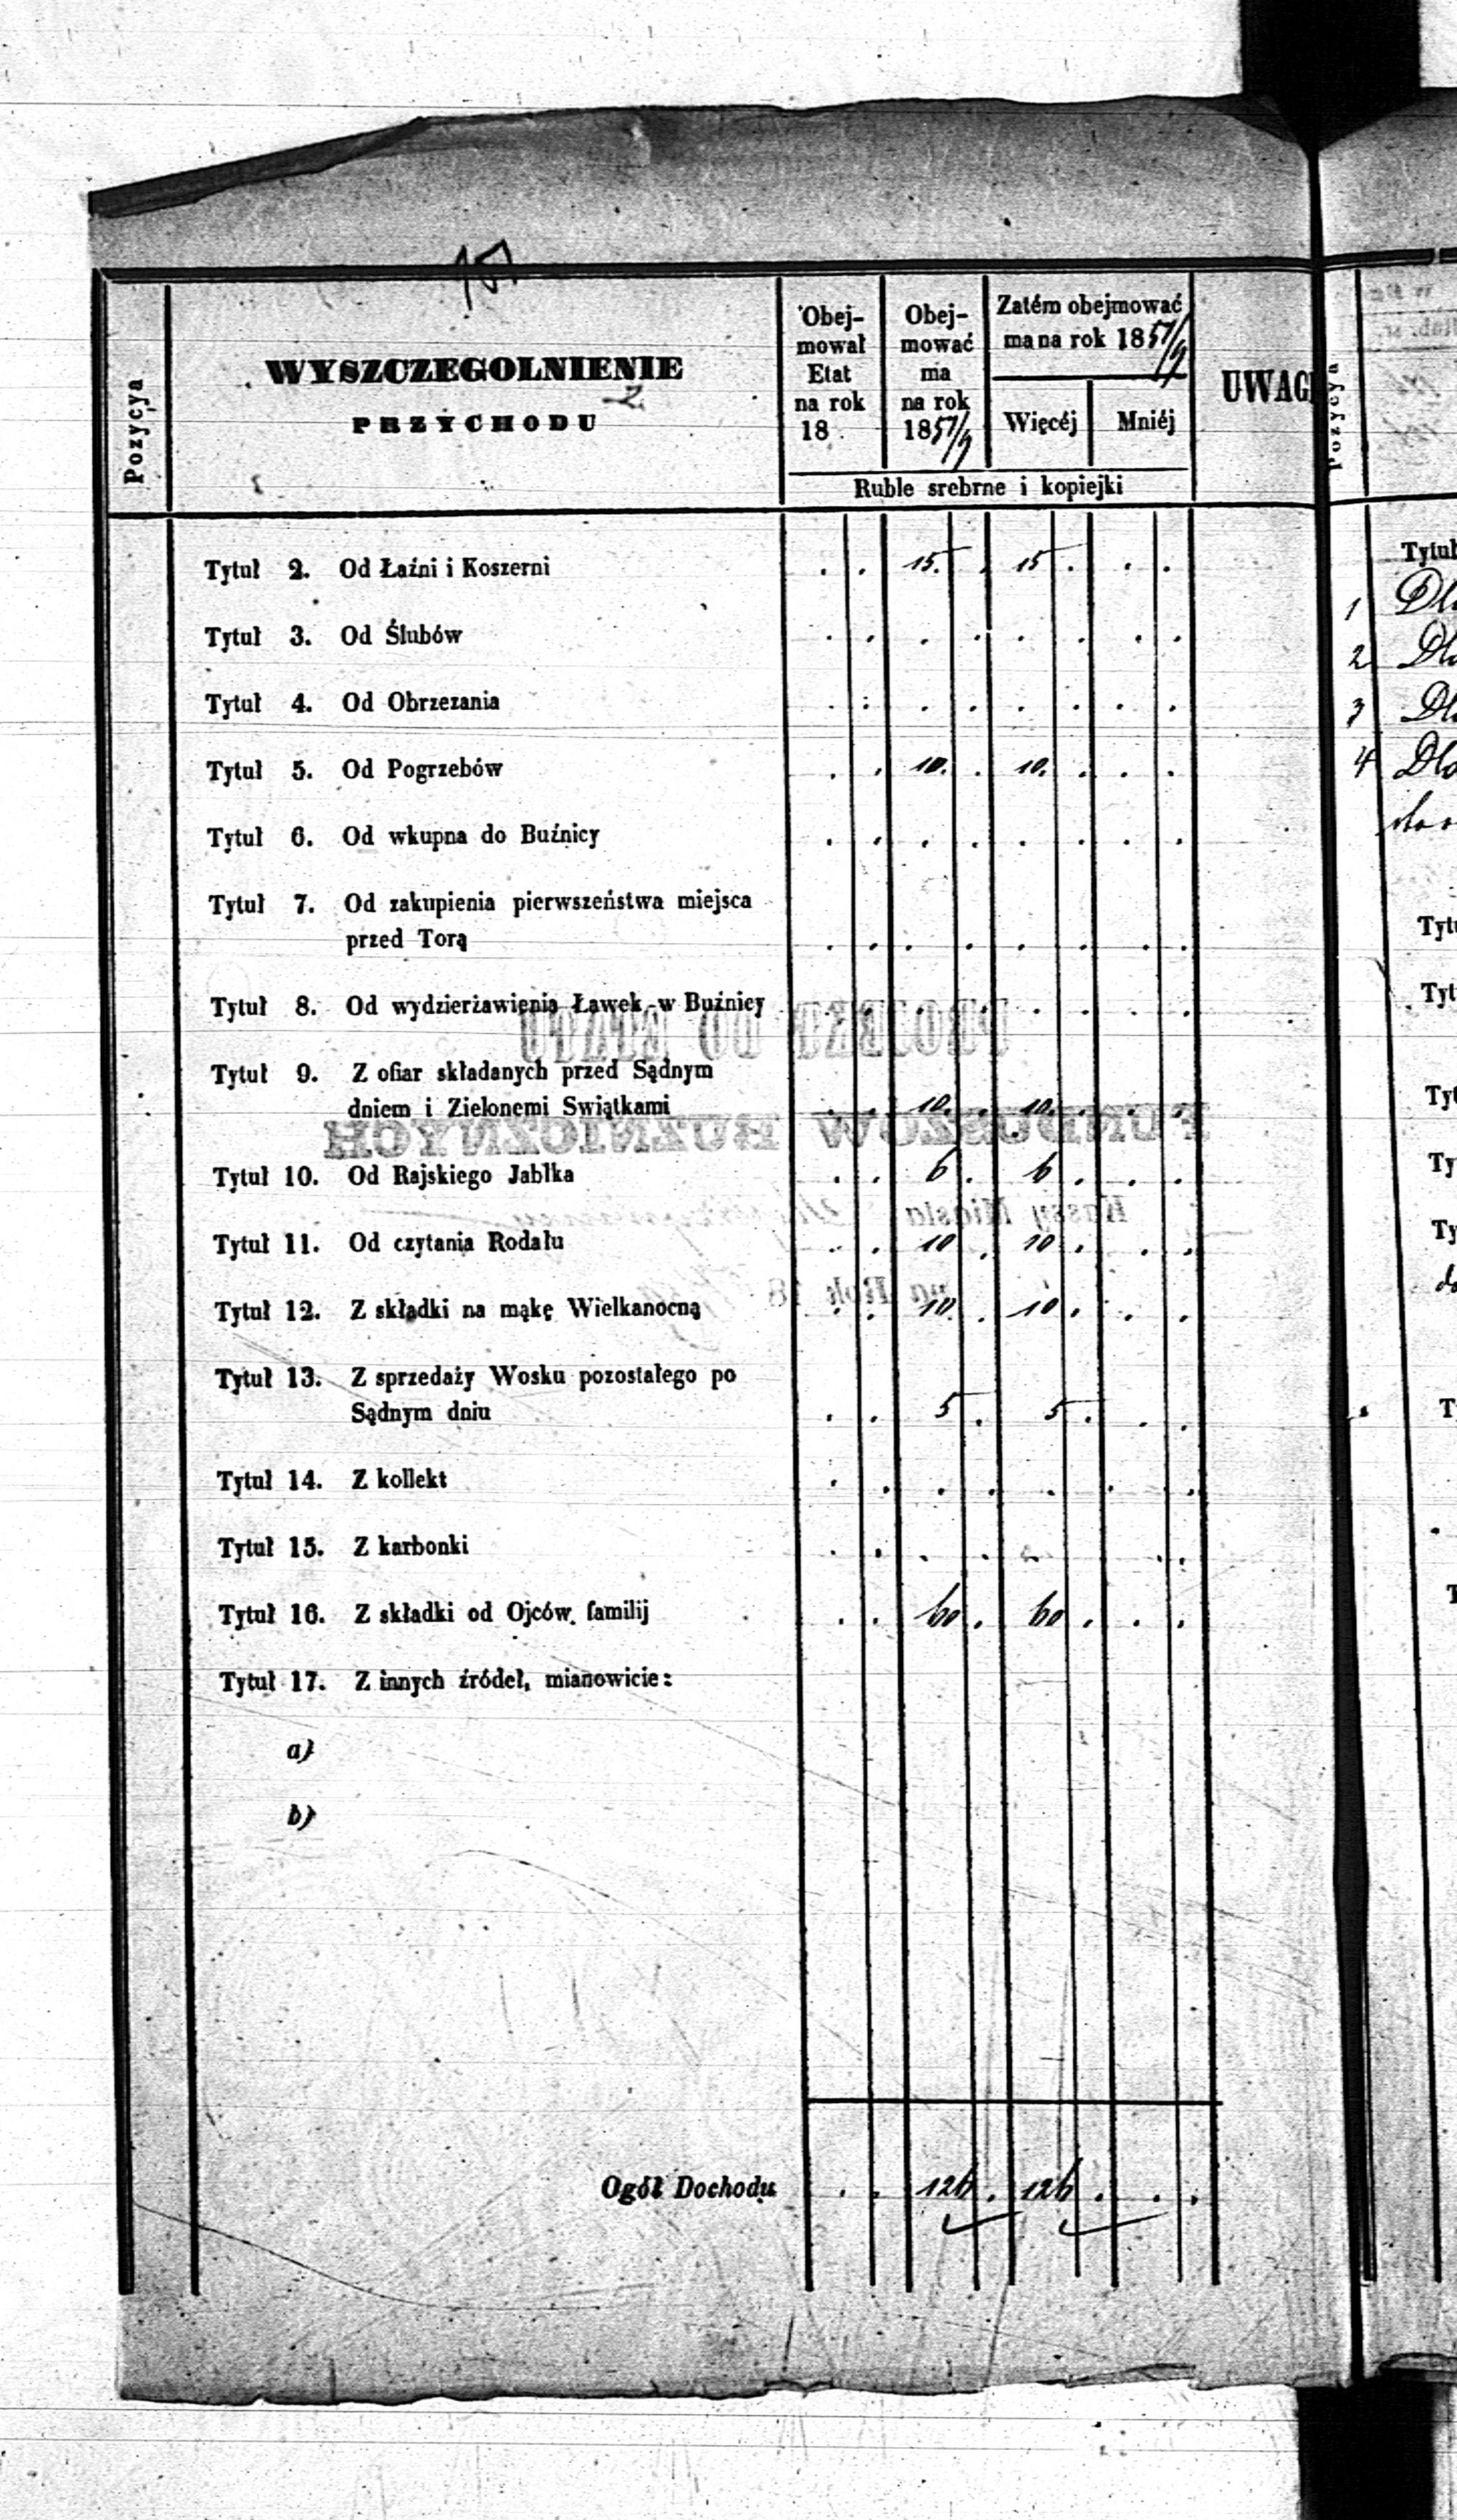 15
Pozycya
WYSZCZEGOLNIENIE
2
PRZYCHODU
Obej-
mował
Etat
na rok
18
Obej-
mować
ma
na rok
1857/9
Zatém obejmować
ma na rok 1857/9
Więcéj Mniéj
Ruble srebrne i kopiejki
UWAGI
Tytuł 2. Od Łaźni i Koszerni . . 15. . 15 . . .
Tytuł 3. Od Ślubów . . . . . . . .
Tytuł 4. Od Obrzezania . . . . . . . .
Tytuł 5. Od Pogrzebów . . 10. . 10. . . .
Tytuł 6. Od wkupna do Buźnicy . . . . . . . .
Tytuł 7. Od zakupienia pierwszeństwa miejsca
przed Torą . . . . . . . .
Tytuł 8. Od wydzierżawienia Ławek w Buźnicy . . . . . . . .
Tytuł 9. Z ofiar składanych przed Sądnym
dniem i Zielonemi Swiątkami . . 10. . 10. . . .
Tytuł 10. Od Rajskiego Jabłka . . 6 . 6 . . .
Tytuł 11. Od czytania Rodału . . 10 . 10 . . .
Tytuł 12. Z składki na mąkę Wielkanocną . . 10. . 10 . . .
Tytuł 13. Z sprzedaży Wosku pozostałego po
Sądnym dniu . . 5 . 5 . . .
Tytuł 14. Z kollekt . . . . . . .
Tytuł 15. Z karbonki . . . . . . .
Tytuł 16. Z składki od Ojców familij . . 60 . 60 . . .
Tytuł 17. Z innych źródeł, mianowicie:
a)
b)
Ogół Dochodu . . 126 . 126 . . .
Pozycya
Tytuł
1
2
3
4